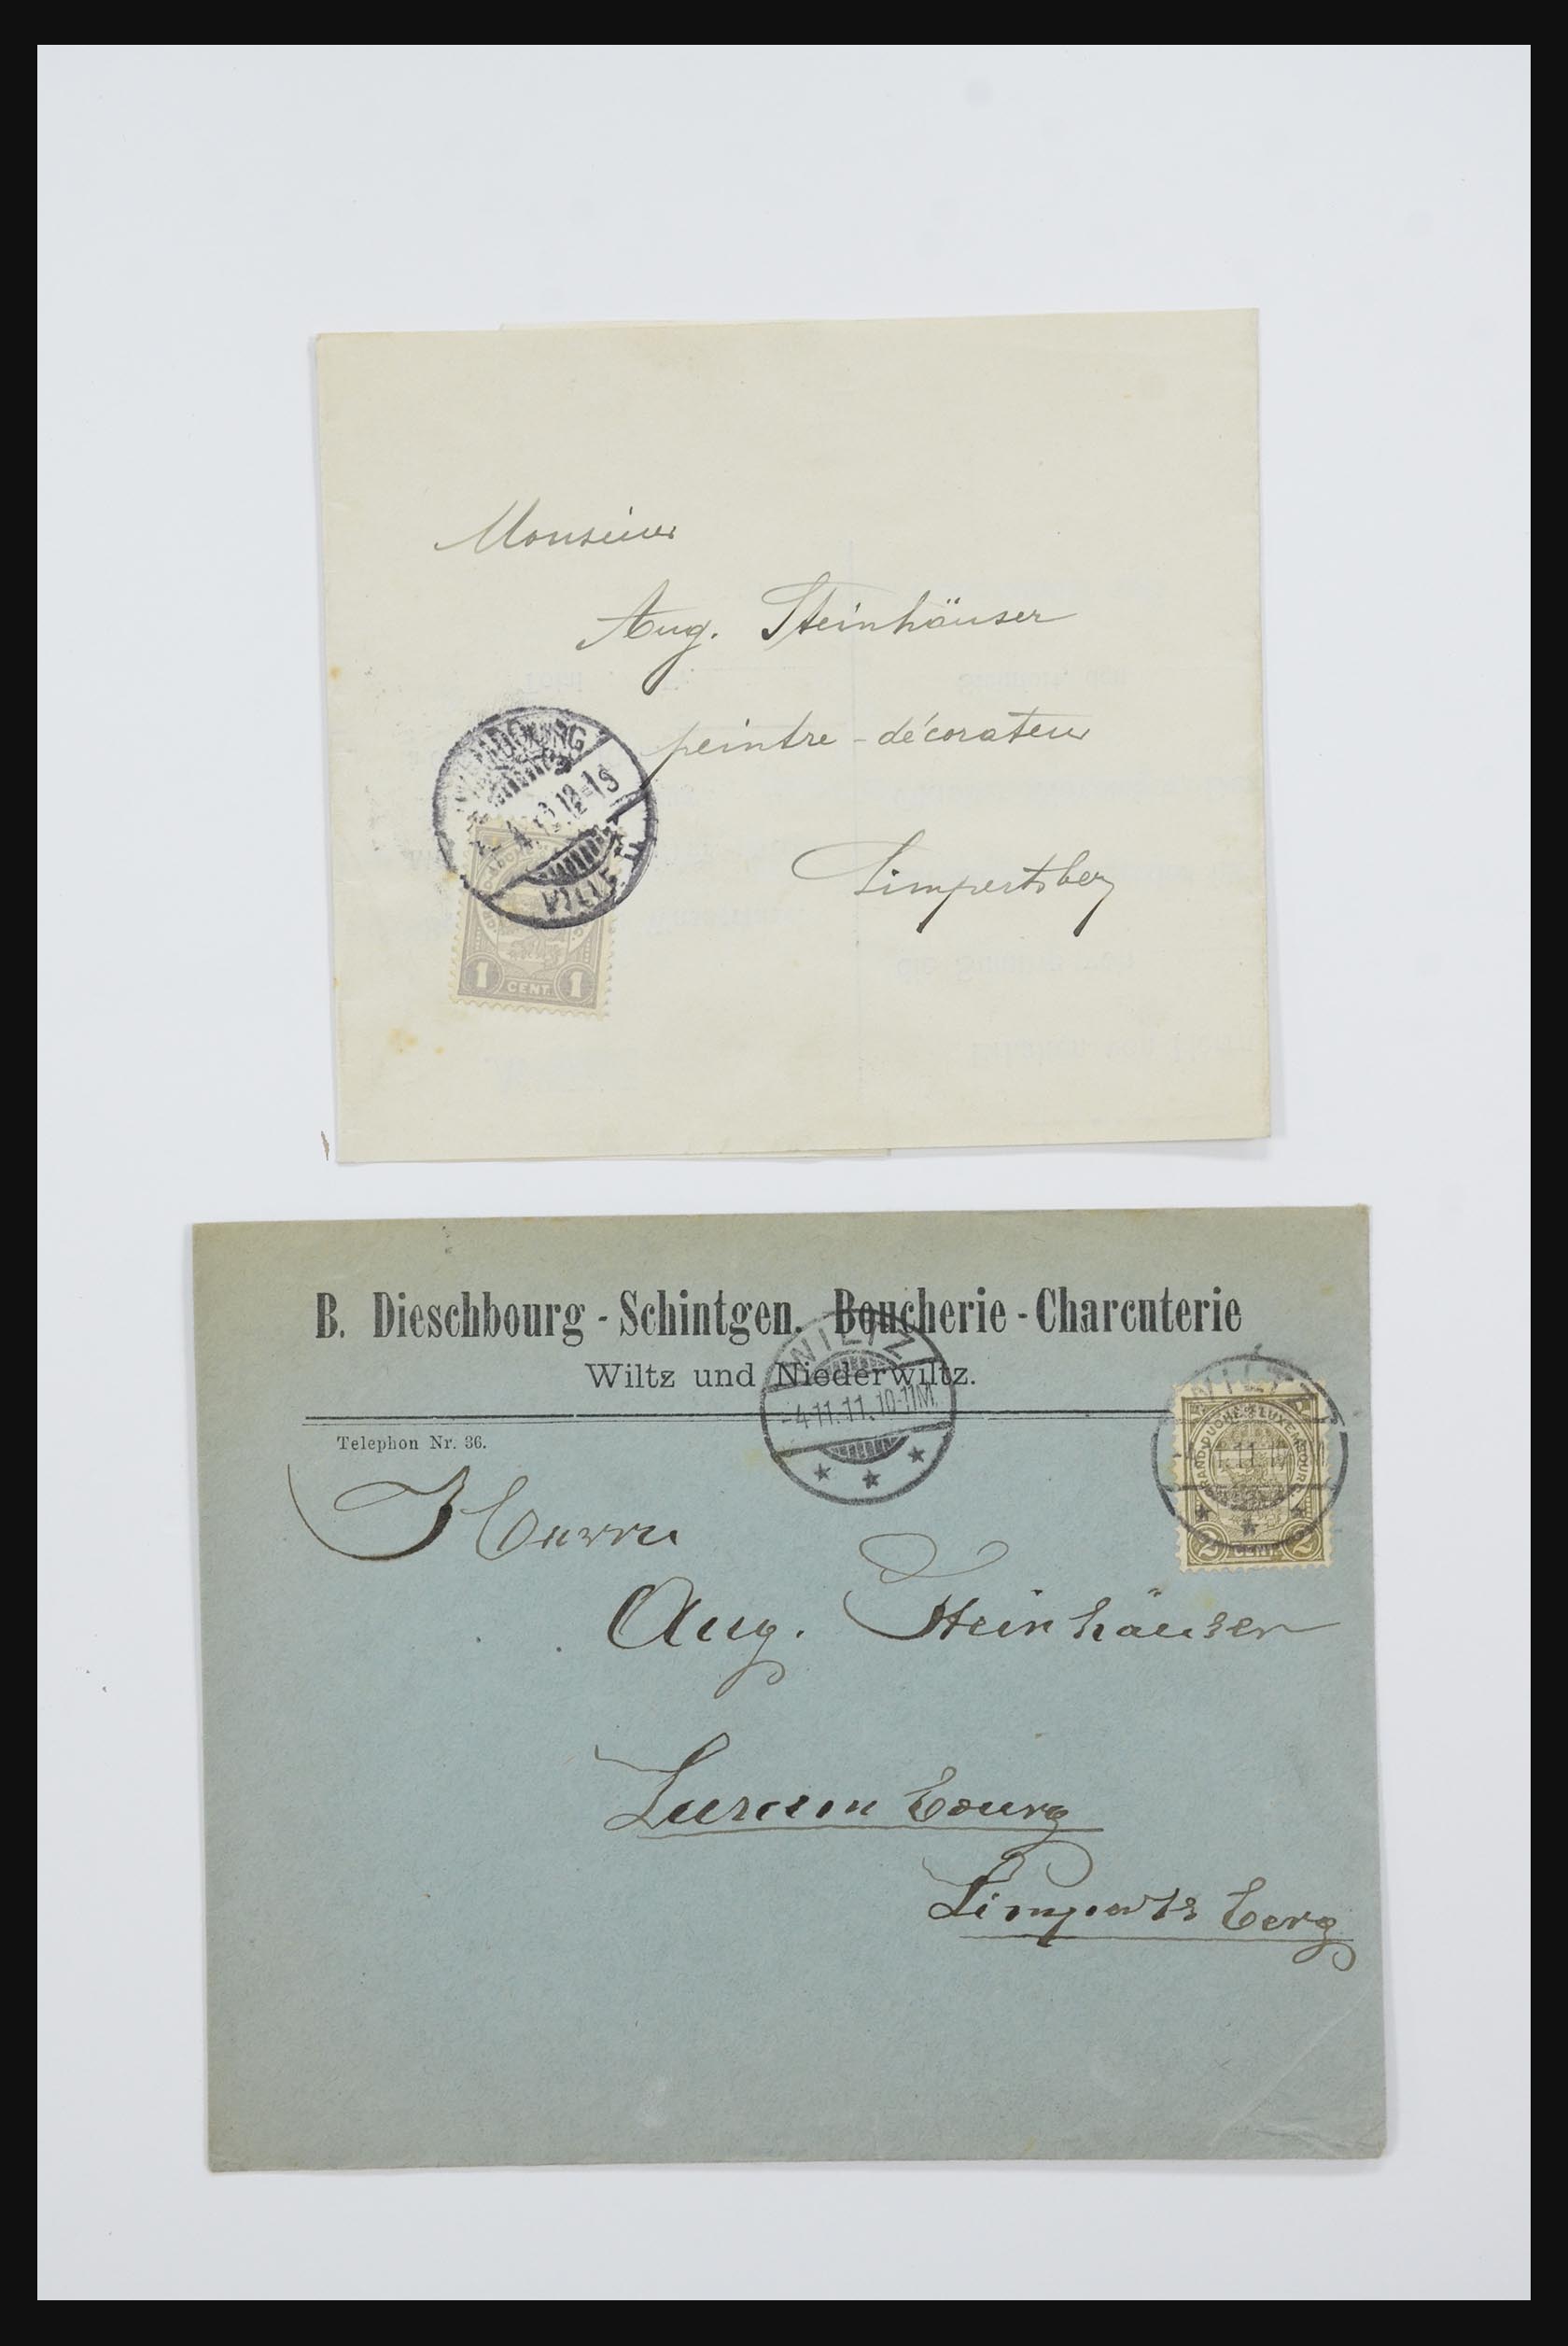 Monsieur
Aug. Steinhäuser
peintre-décorateur
Limpertsberg
VILLE
1 CENT. 1
B. Dieschbourg-Schintgen. Boucherie-Charcuterie
Wiltz und Niederwiltz.
Telephon Nr. 36.
WILTZ
-4.11.11.10-11M.
WILTZ
GRAND DUCHÉ DE LUXEMBOURG
2 CENT. 2
Herrn
Aug. Steinhäuser
Luxembourg
Limpertsberg